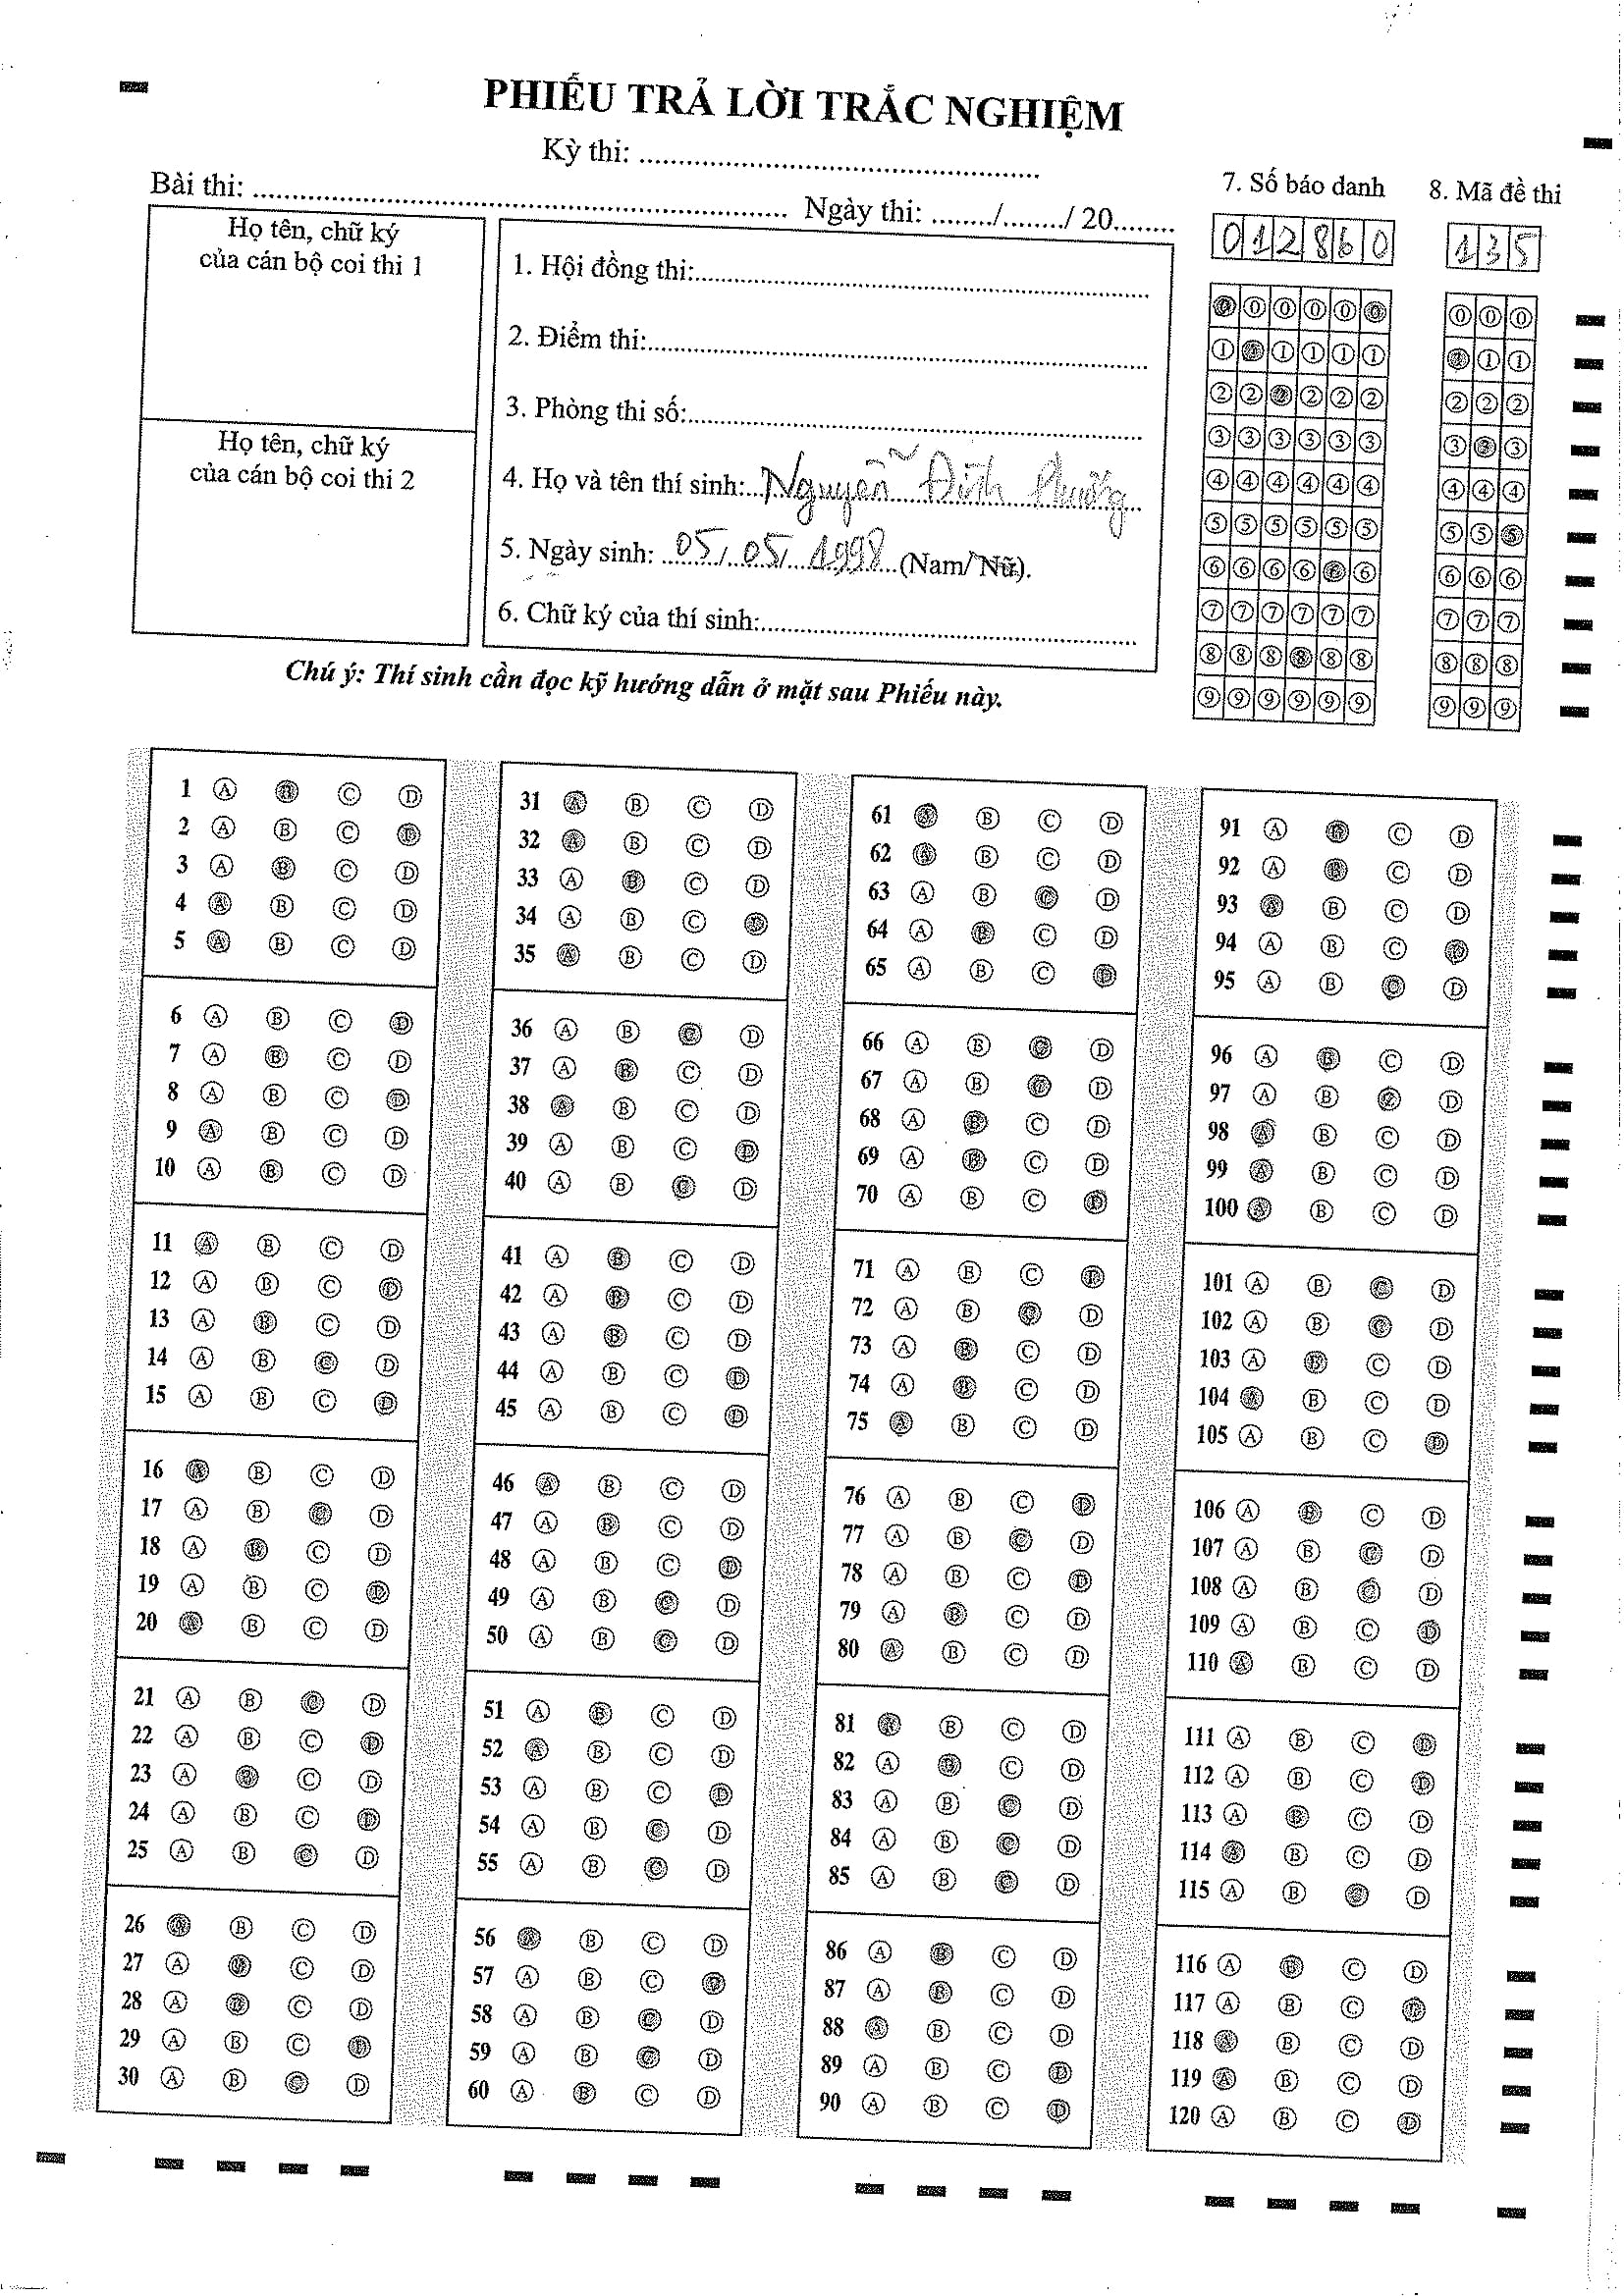 PHIẾU TRẢ LỜI TRẮC NGHIỆM
Kỳ thi: ........................................
Bài thi: ........................................ Ngày thi: ......../......../ 20........
Họ tên, chữ ký
của cán bộ coi thi 1
Họ tên, chữ ký
của cán bộ coi thi 2
1. Hội đồng thi:........................................
2. Điểm thi:........................................
3. Phòng thi số:........................................
4. Họ và tên thí sinh: Nguyễn Đình Phương
5. Ngày sinh: 05/05/1998 (Nam/ Nữ).
6. Chữ ký của thí sinh:........................................
Chú ý: Thí sinh cần đọc kỹ hướng dẫn ở mặt sau Phiếu này.
7. Số báo danh
012860
0 0 0 0 0 0
1 1 1 1 1 1
2 2 2 2 2 2
3 3 3 3 3 3
4 4 4 4 4 4
5 5 5 5 5 5
6 6 6 6 6 6
7 7 7 7 7 7
8 8 8 8 8 8
9 9 9 9 9 9
8. Mã đề thi
135
0 0 0
1 1 1
2 2 2
3 3 3
4 4 4
5 5 5
6 6 6
7 7 7
8 8 8
9 9 9
1 A B C D
2 A B C D
3 A B C D
4 A B C D
5 A B C D
6 A B C D
7 A B C D
8 A B C D
9 A B C D
10 A B C D
11 A B C D
12 A B C D
13 A B C D
14 A B C D
15 A B C D
16 A B C D
17 A B C D
18 A B C D
19 A B C D
20 A B C D
21 A B C D
22 A B C D
23 A B C D
24 A B C D
25 A B C D
26 A B C D
27 A B C D
28 A B C D
29 A B C D
30 A B C D
31 A B C D
32 A B C D
33 A B C D
34 A B C D
35 A B C D
36 A B C D
37 A B C D
38 A B C D
39 A B C D
40 A B C D
41 A B C D
42 A B C D
43 A B C D
44 A B C D
45 A B C D
46 A B C D
47 A B C D
48 A B C D
49 A B C D
50 A B C D
51 A B C D
52 A B C D
53 A B C D
54 A B C D
55 A B C D
56 A B C D
57 A B C D
58 A B C D
59 A B C D
60 A B C D
61 A B C D
62 A B C D
63 A B C D
64 A B C D
65 A B C D
66 A B C D
67 A B C D
68 A B C D
69 A B C D
70 A B C D
71 A B C D
72 A B C D
73 A B C D
74 A B C D
75 A B C D
76 A B C D
77 A B C D
78 A B C D
79 A B C D
80 A B C D
81 A B C D
82 A B C D
83 A B C D
84 A B C D
85 A B C D
86 A B C D
87 A B C D
88 A B C D
89 A B C D
90 A B C D
91 A B C D
92 A B C D
93 A B C D
94 A B C D
95 A B C D
96 A B C D
97 A B C D
98 A B C D
99 A B C D
100 A B C D
101 A B C D
102 A B C D
103 A B C D
104 A B C D
105 A B C D
106 A B C D
107 A B C D
108 A B C D
109 A B C D
110 A B C D
111 A B C D
112 A B C D
113 A B C D
114 A B C D
115 A B C D
116 A B C D
117 A B C D
118 A B C D
119 A B C D
120 A B C D